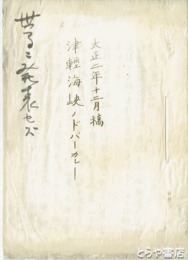 大正二年十二月稿
津輕海峽ノドバーカレー
世ニ発表セズ
とらや書店